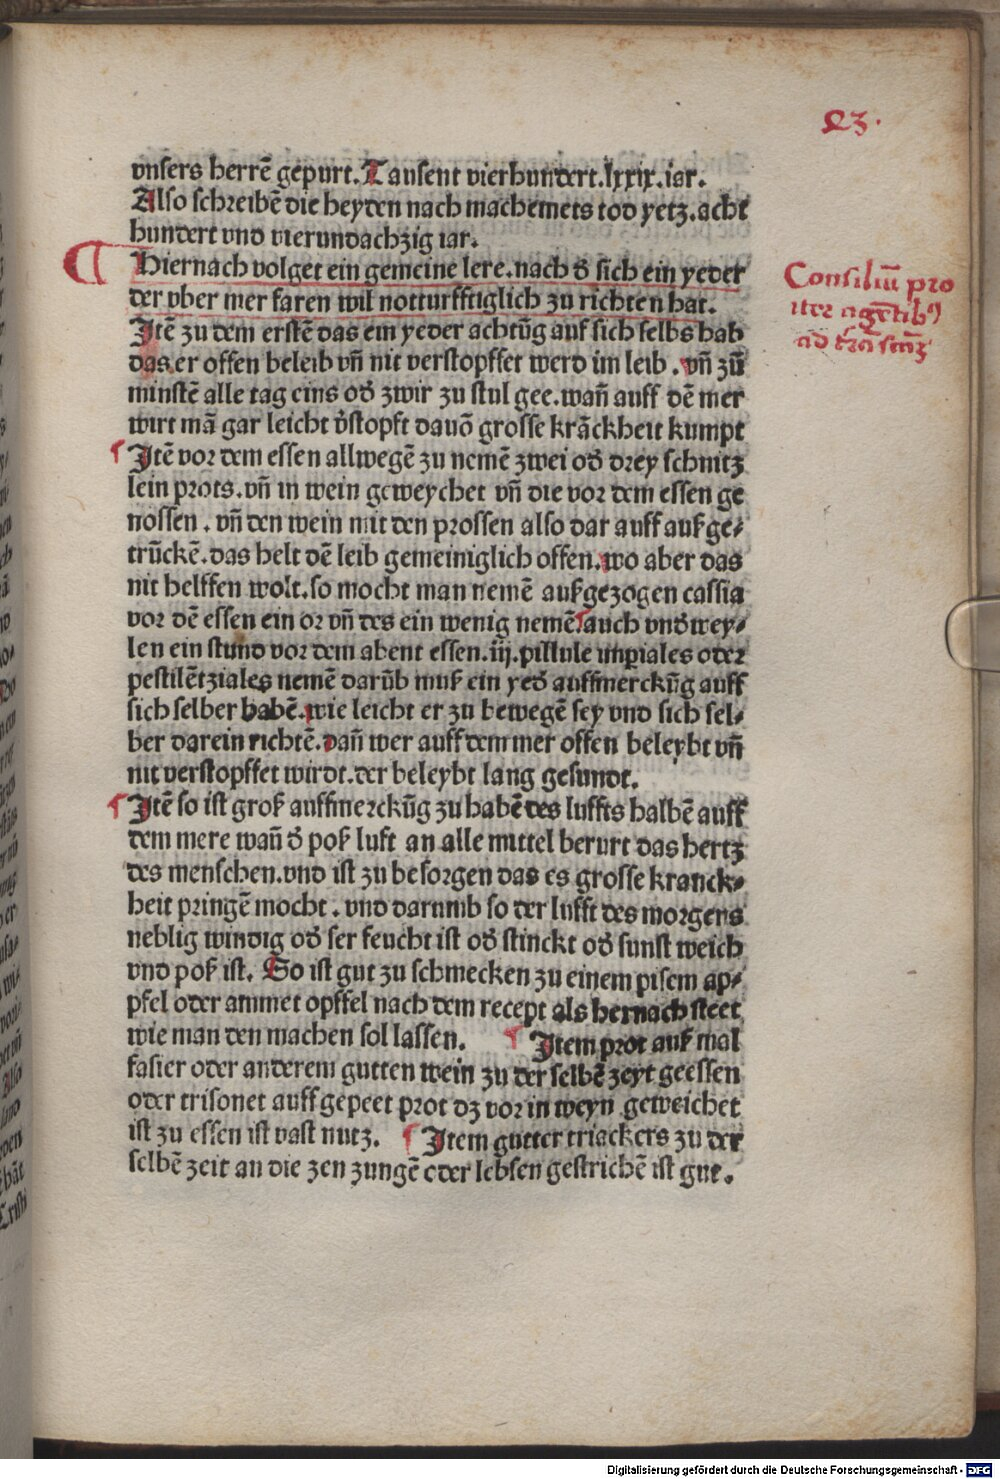 23.
vnsers herrē gepurt. Tausent vierhundert.lxxix.iar.
Also schreibē die heyden nach machemets tod yetz.acht
hundert vnd vierundachzig iar.
Hiernach volget ein gemeine lere.nach d̄ sich ein yeder
der vber mer faren wil notturfftiglich zu richten hat.
Consiliū pro
iter agētibꝰ
ad terrā sctāʒ
Itē zu dem erstē das ein yeder achtūg auf sich selbs hab
das er offen beleib vn̄ nit verstopffet werd im leib . vn̄ zū
minstē alle tag eins od̄ zwir zu stul gee. wan̄ auff dē mer
wirt mā gar leicht v̄stopft dauō grosse krāckheit kumpt
Itē vor dem essen allwegē zu nemē zwei od̄ drey schnitz
lein prots. vn̄ in wein geweychet vn̄ die vor dem essen ge
nossen . vn̄ den wein mit den prossen also dar auff auß ge⸗
trūckē.das helt dē leib gemeiniglich offen.wo aber das
nit helffen wolt.so mocht man nemē außgezogen cassia
vor dē essen ein or vn̄ des ein wenig nemē auch vnd̄wey⸗
len ein stund vor dem abent essen.iij.pillule imperiales oder
pestilētziales nemē darūb muß ein yed̄ auffmerckūg auff
sich selber habē.wie leicht er zu bewegē sey vnd sich sel⸗
ber darein richtē.dan̄ wer auff dem mer offen beleybt vn̄
nit verstopffet wirdt.der beleybt lang gesundt.
Itē so ist groß auffmerckūg zu habē des luffts halbē auff
dem mere wan̄ d̄ poß luft an alle mittel berurt das hertz
des menschen.vnd ist zu besorgen das es grosse kranck⸗
heit pringē mocht . vnd darumb so der lufft des morgens
neblig windig od̄ ser feucht ist od̄ stinckt od̄ sunst weich
vnd poß ist. So ist gut zu schmecken zu einem pisem ap⸗
pfel oder ammet opffel nach dem recept als hernach steet
wie man den machen sol lassen. Item prot auß mal
fasier oder anderem gutten wein zu der selbē zeyt geessen
oder trisonet auff gepeet prot dz vor in weyn geweichet
ist zu essen ist vast nutz. Item gutter triackers zu der
selbē zeit an die zen zungē oder lebsen gestrichē ist gut.
Digitalisierung gefördert durch die Deutsche Forschungsgemeinschaft - DFG